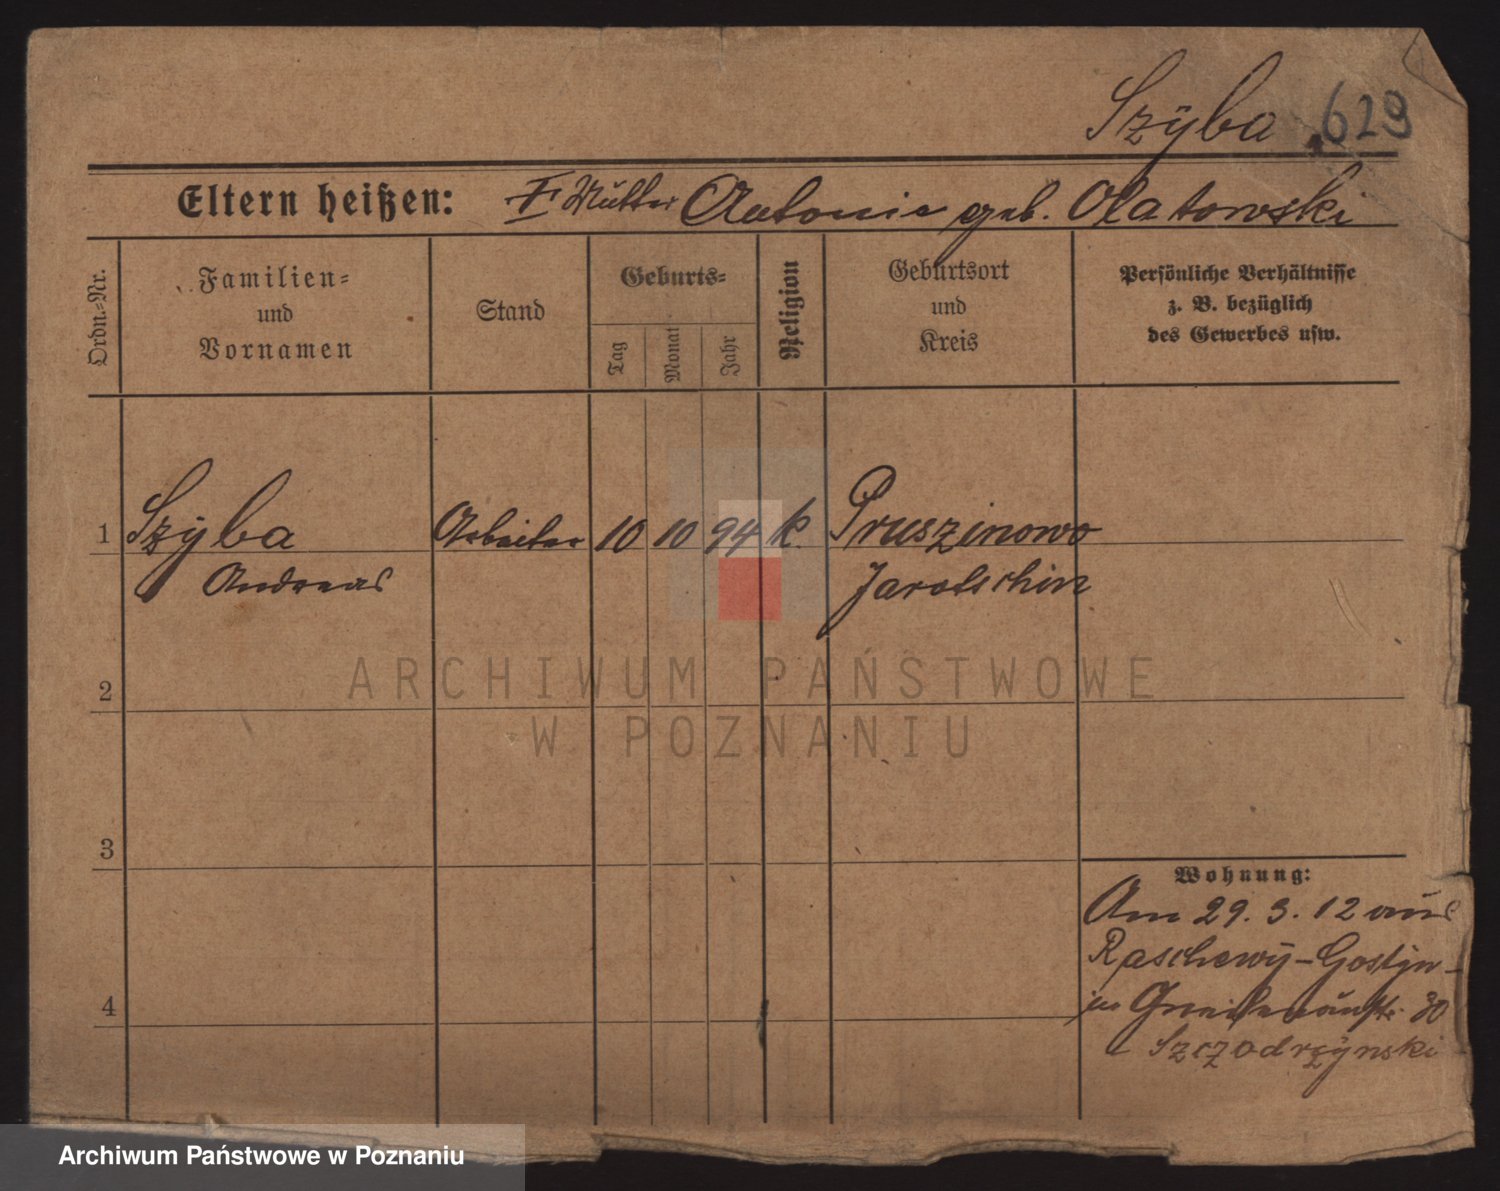 Szÿba 629
Eltern heißen: Mutter Antonie geb. Olatowski
Ordn.-Nr.
Familien- und Vornamen
Stand
Geburts-
Tag
Monat
Jahr
Religion
Geburtsort und Kreis
Persönliche Verhältnisse
z. B. bezüglich
des Gewerbes usw.
1 Szÿba Arbeiter 10 10 94 k. Pruszinowo
Andreas Jarotschin
ARCHIWUM PAŃSTWOWE
W POZNANIU
2
3
4
Wohnung:
Am 29. 3. 12 aus
Raschewÿ-Gostÿn-
in 30
Szczodrzÿnski
Archiwum Państwowe w Poznaniu